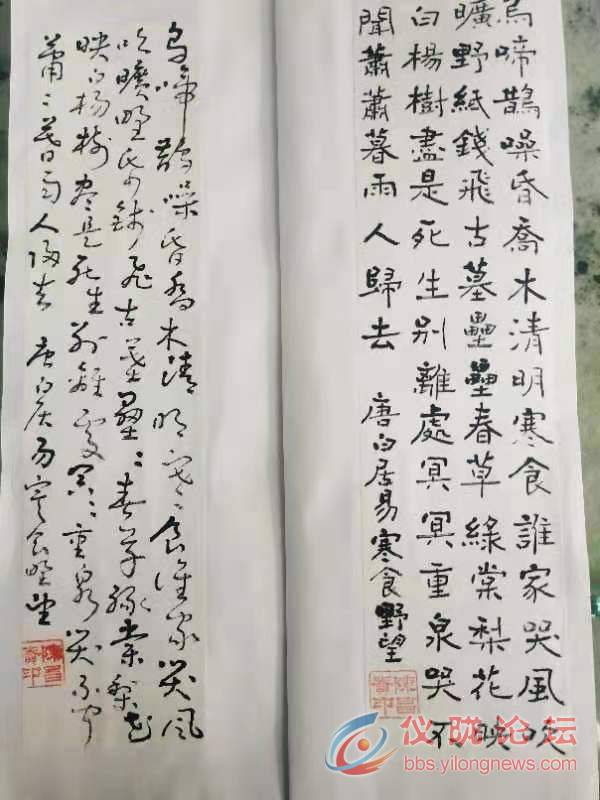 烏啼鵲噪昏喬木清明寒食誰家哭風吹
曠野紙錢飛古墓壘壘春草綠棠梨花映
白楊樹盡是死生別離處冥冥重泉哭不
聞蕭蕭暮雨人歸去 唐白居易寒食野望
烏啼鵲噪昏喬木清明寒食誰家哭風
吹曠野紙錢飛古墓壘〻春草綠棠梨花
映白楊樹盡是死生別離處冥〻重泉哭不聞
蕭〻暮雨人歸去 唐白居易寒食野望
仪陇论坛
bbs.yilongnews.com